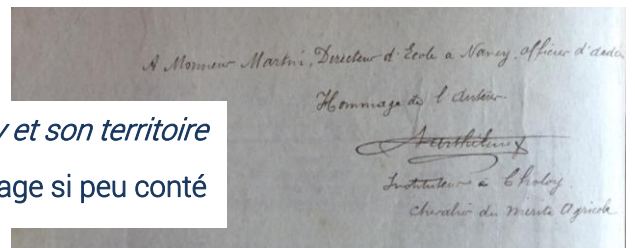 A Monsieur Martin, Directeur d'Ecole à Nancy, officier d'acadé
Hommage de l'Auteur
Instituteur à Choloy
Chevalier du Mérite Agricole
y et son territoire
age si peu conté